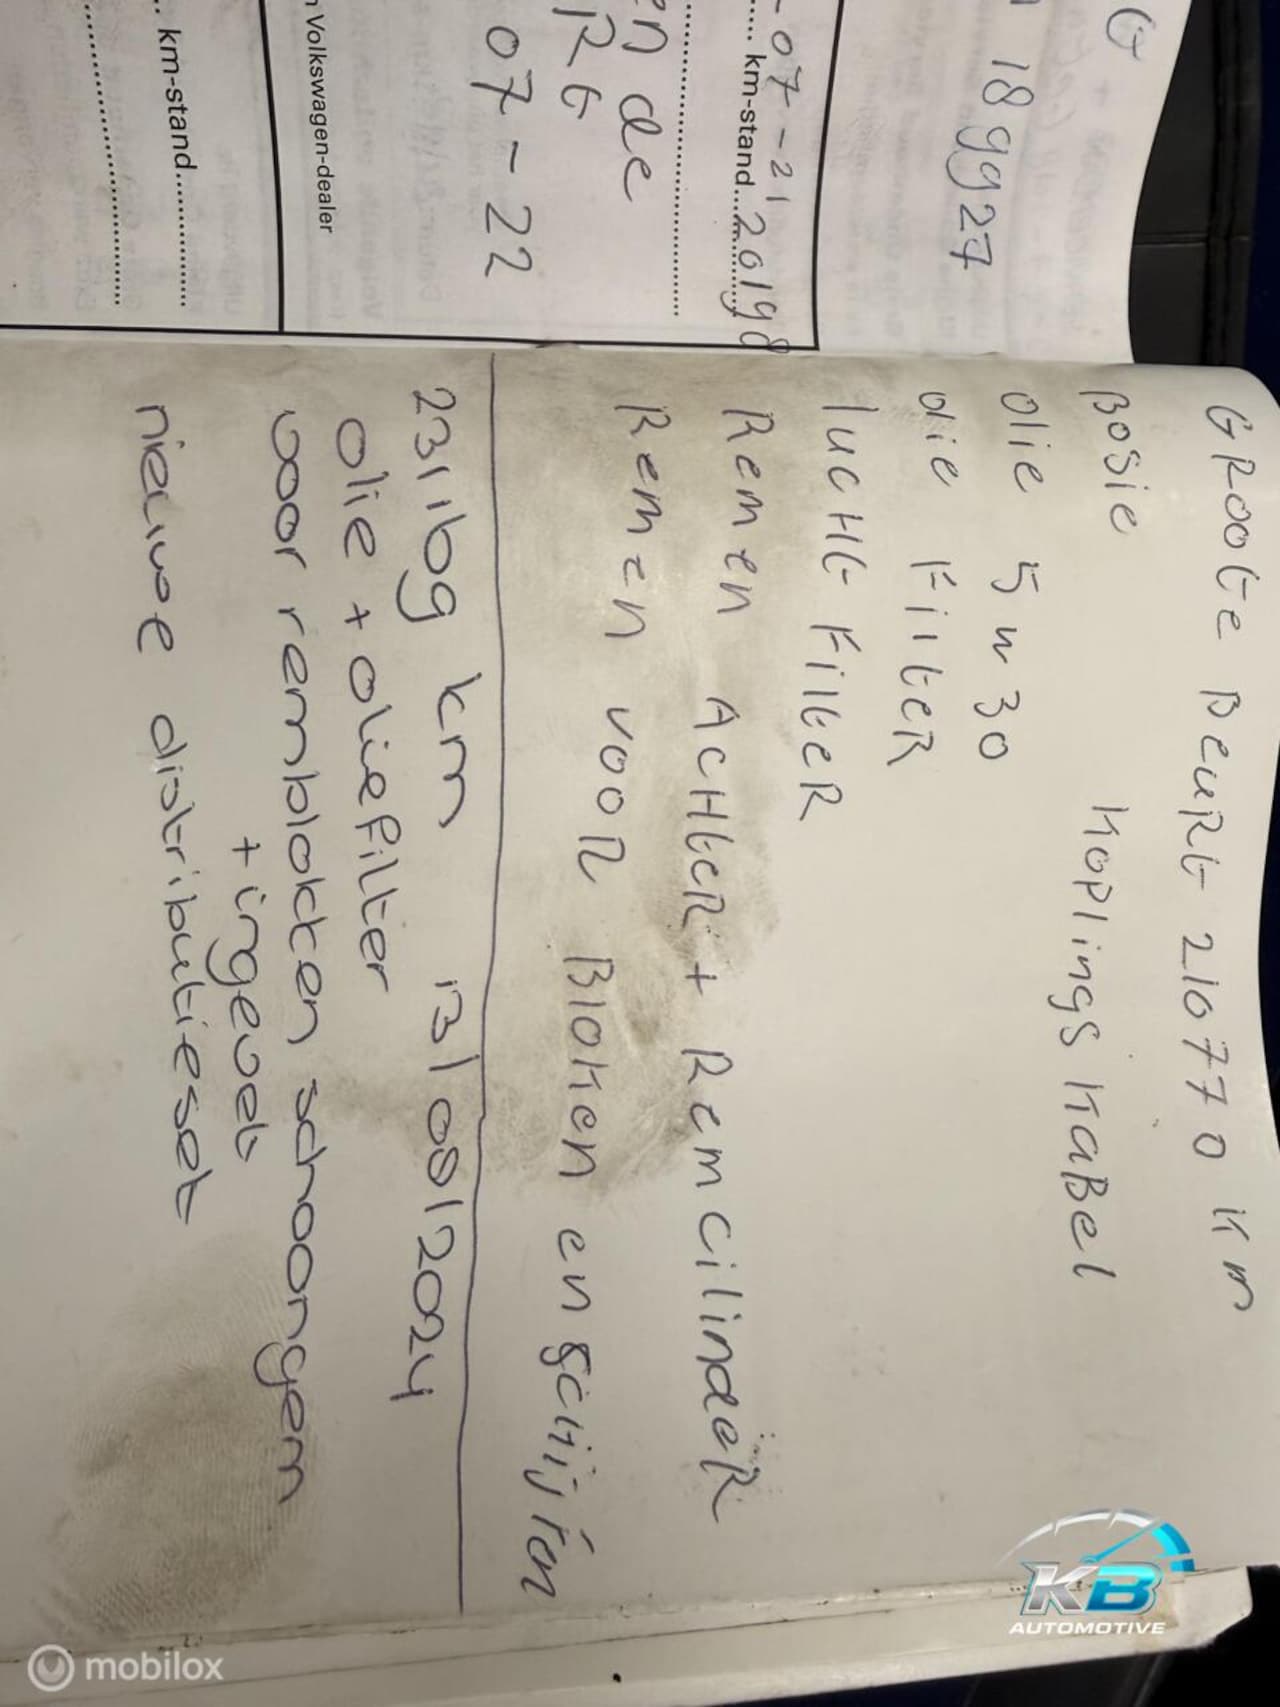 G
18gg27
-07-21
.... km-stand...201g8
en de
Rt
07-22
n Volkswagen-dealer
.. km-stand............
GRoote BeuRt 210770 Km
Bosie Koplings KaBel
olie 5w30
olie FilteR
lucHt FilteR
Remen AcHteR + RemcilindeR
Remen vooR Bloken en schijfen
231169 km 13/08/2024
olie + oliefilter
voor remblokken schoongem
+ ingevet
nieuwe distributieset
KB
AUTOMOTIVE
mobilox